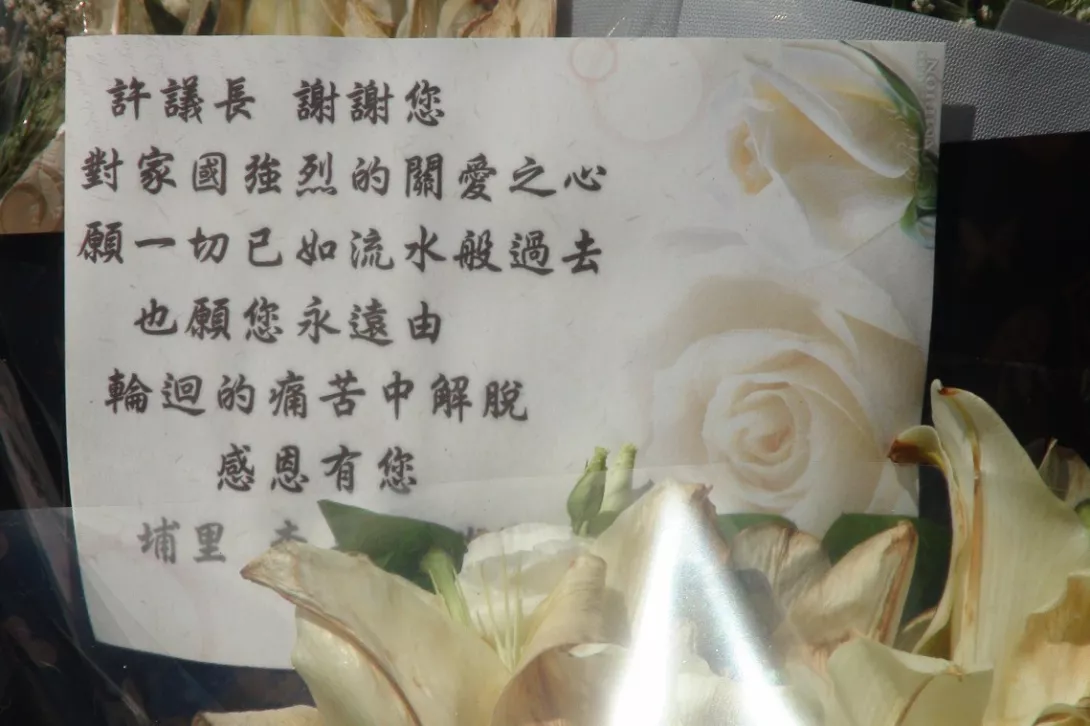 許議長 謝謝您
對家國強烈的關愛之心
願一切已如流水般過去
也願您永遠由
輪迴的痛苦中解脫
感恩有您
埔里